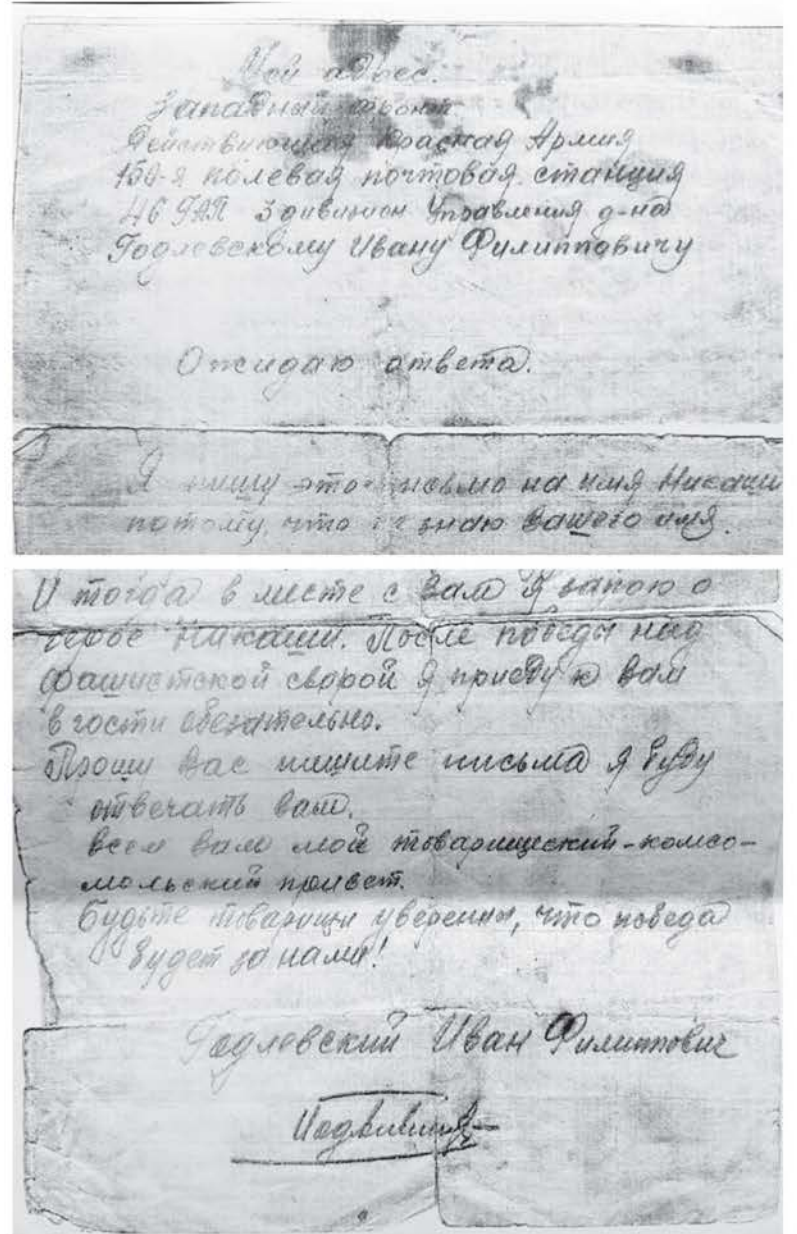 Мой адрес.
Западный фронт.
Действующая Красная Армия
150-я полевая почтовая станция
46 ГАП 3 дивизион Управления д-на
Годлевскому Ивану Филипповичу
Ожидаю ответа.
Я пишу это письмо на имя Никаши
потому, что не знаю Вашего имя.
И тогда в месте с Вам я запою о
герое Никаши. После победы над
фашистской сворой я приеду к Вам
в гости обезательно.
Прошу Вас пишите письма я буду
отвечать Вам.
Всем Вам мой товарищеский-комсо-
мольский привет.
Будьте товарищи уверенны, что победа
будет за нами!
Годлевский Иван Филиппович